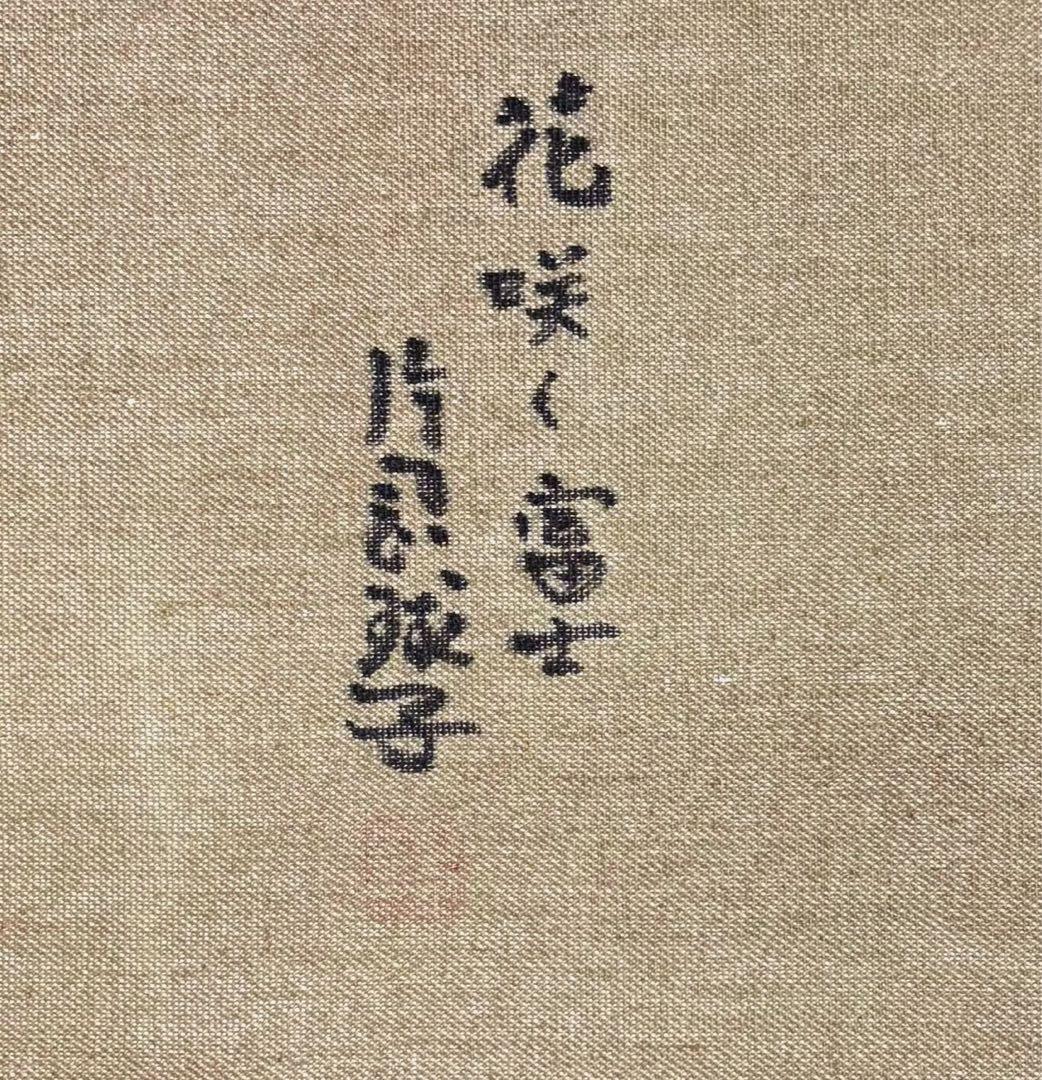 花咲く富士
片岡球子